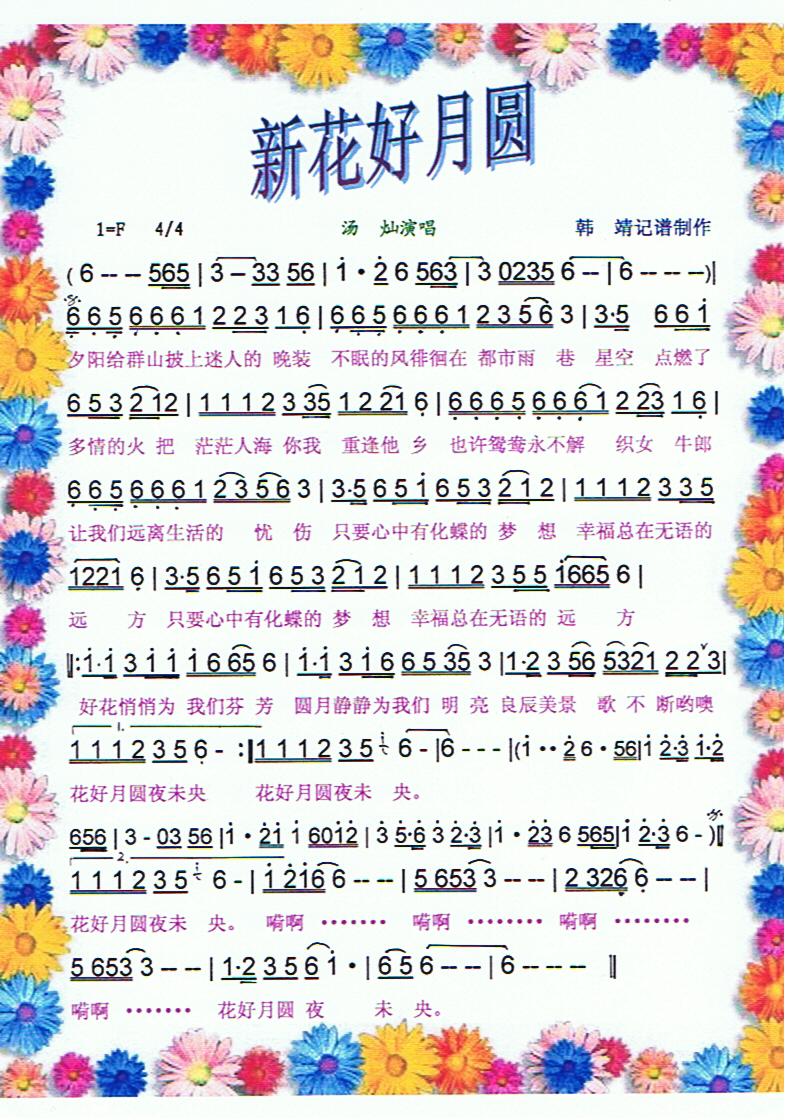 新花好月圆
1=F 4/4 汤 灿演唱 韩 靖记谱制作
( 6 -- -- 565 | 3 – 33 56 | 1 • 2 6 563 | 3 0235 6 -- | 6 -- -- --)|
6 6 5 6 6 6 1 2 2 3 1 6 | 6 6 5 6 6 6 1 2 3 5 6 3 | 3·5 6 6 1
夕阳给群山披上迷人的 晚装 不眠的风徘徊在 都市雨 巷 星空 点燃了
6 5 3 2 12 | 1 1 1 2 3 35 1 2 21 6 | 6 6 6 5 6 6 6 1 2 23 1 6 |
多情的火 把 茫茫人海 你我 重逢他 乡 也许鸳鸯永不解 织女 牛郎
6 6 5 6 6 6 1 2 3 5 6 3 | 3·5 6 5 1 6 5 3 2 1 2 | 1 1 1 2 3 3 5
让我们远离生活的 忧 伤 只要心中有化蝶的 梦 想 幸福总在无语的
1221 6 | 3·5 6 5 1 6 5 3 2 1 2 | 1 1 1 2 3 5 5 1665 6 |
远 方 只要心中有化蝶的 梦 想 幸福总在无语的 远 方
‖:1·1 3 1 1 1 6 65 6 | 1·1 3 1 6 6 5 35 3 |1·2 3 56 5321 2 2 3|
好花悄悄为 我们芬 芳 圆月静静为我们 明 亮 良辰美景 歌 不 断哟噢
1.
1 1 1 2 3 5 6 - :‖1 1 1 2 3 5 i 6 - |6 - - - |(1 •• 2 6 • 56|1 2·3 1·2
花好月圆夜未央 花好月圆夜未 央。
656 | 3 - 03 56 |1 • 21 1 6012 | 3 5·6 3 2·3 |1 • 23 6 565|1 2·3 6 - )‖
2.
1 1 1 2 3 5 i 6 - | 1 216 6 -- -- | 5 653 3 -- -- | 2 326 6 -- -- |
花好月圆夜未 央。 嗬啊 ••••••• 嗬啊 •••••••• 嗬啊 ••••••••
5 653 3 -- -- | 1·2 3 5 6 1 • | 6 5 6 -- -- | 6 -- -- -- ‖
嗬啊 ••••••• 花好月圆 夜 未 央。